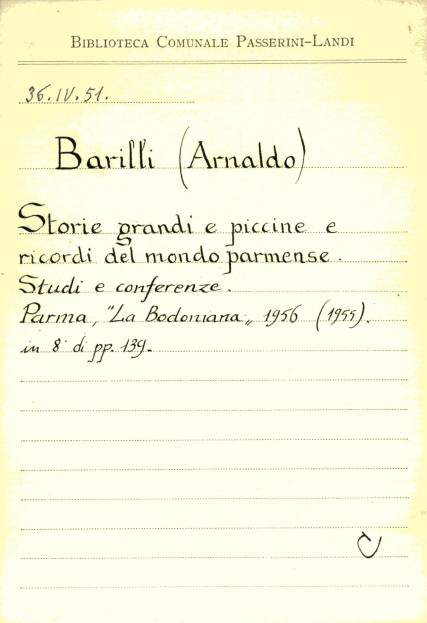 BIBLIOTECA COMUNALE PASSERINI-LANDI
36.IV.51.
Barilli (Arnaldo)
Storie grandi e piccine e
ricordi del mondo parmense.
Studi e conferenze.
Parma, "La Bodoniana„ 1956 (1955).
in 8° di pp. 139.